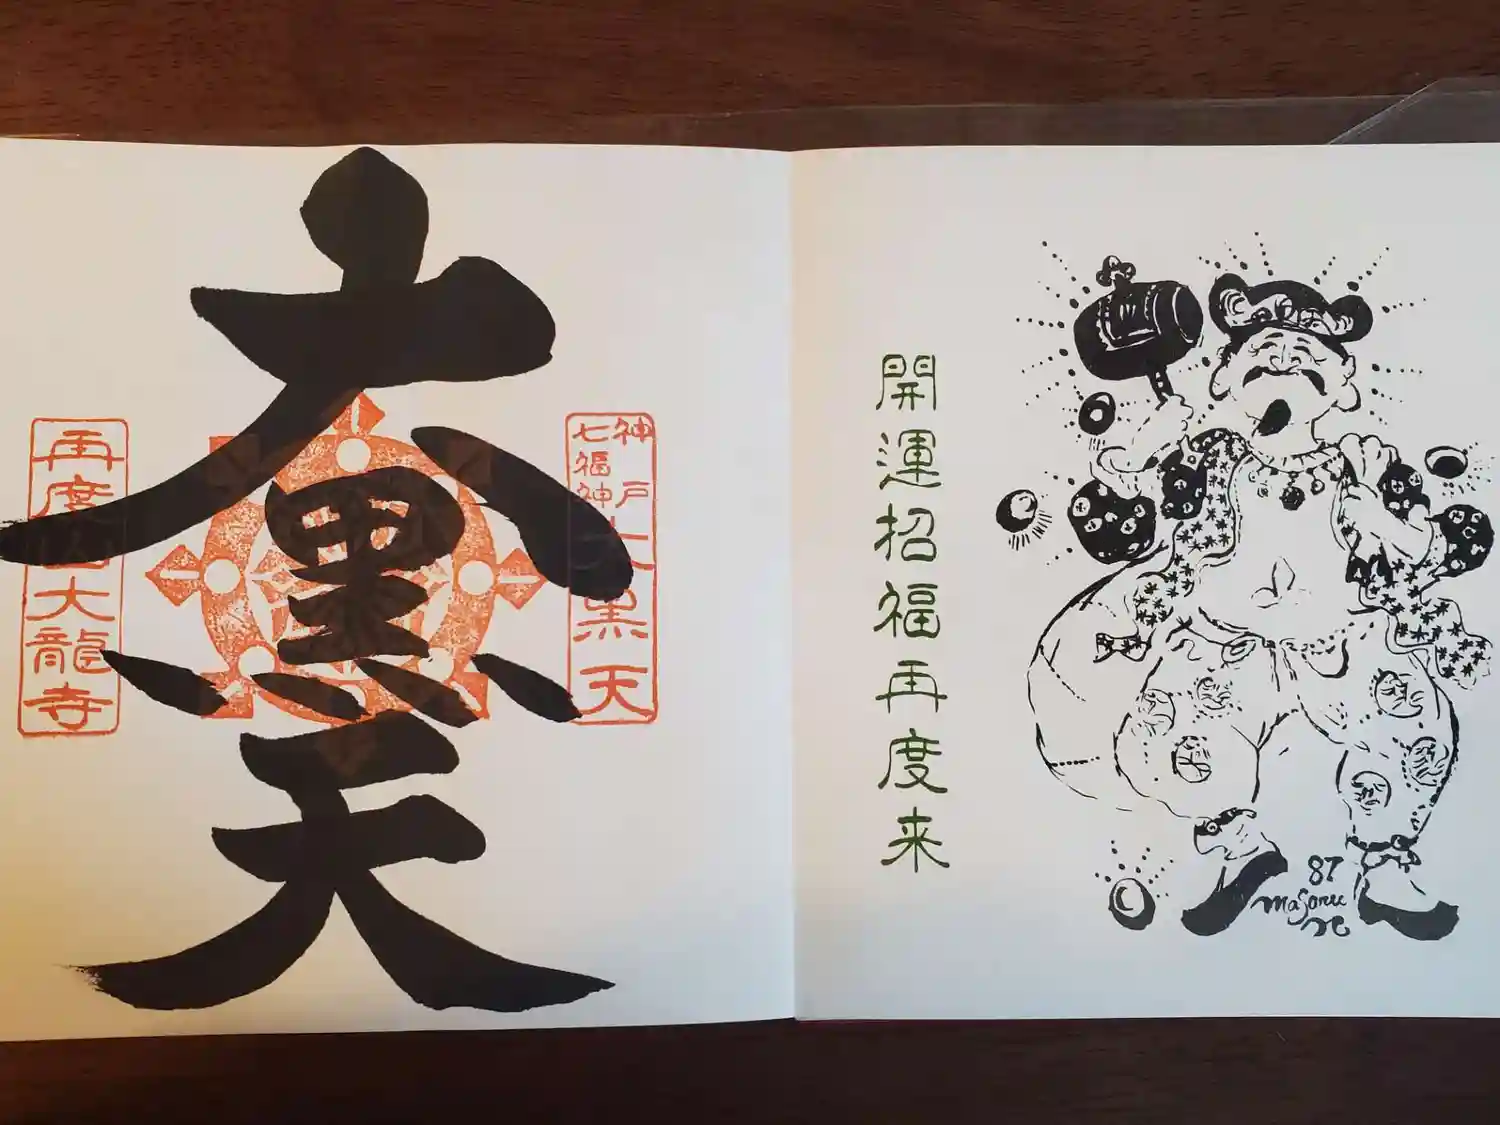 開運招福再度来
87
Masaru
神戸
七福神
大黒天
大黒天
再度山大龍寺